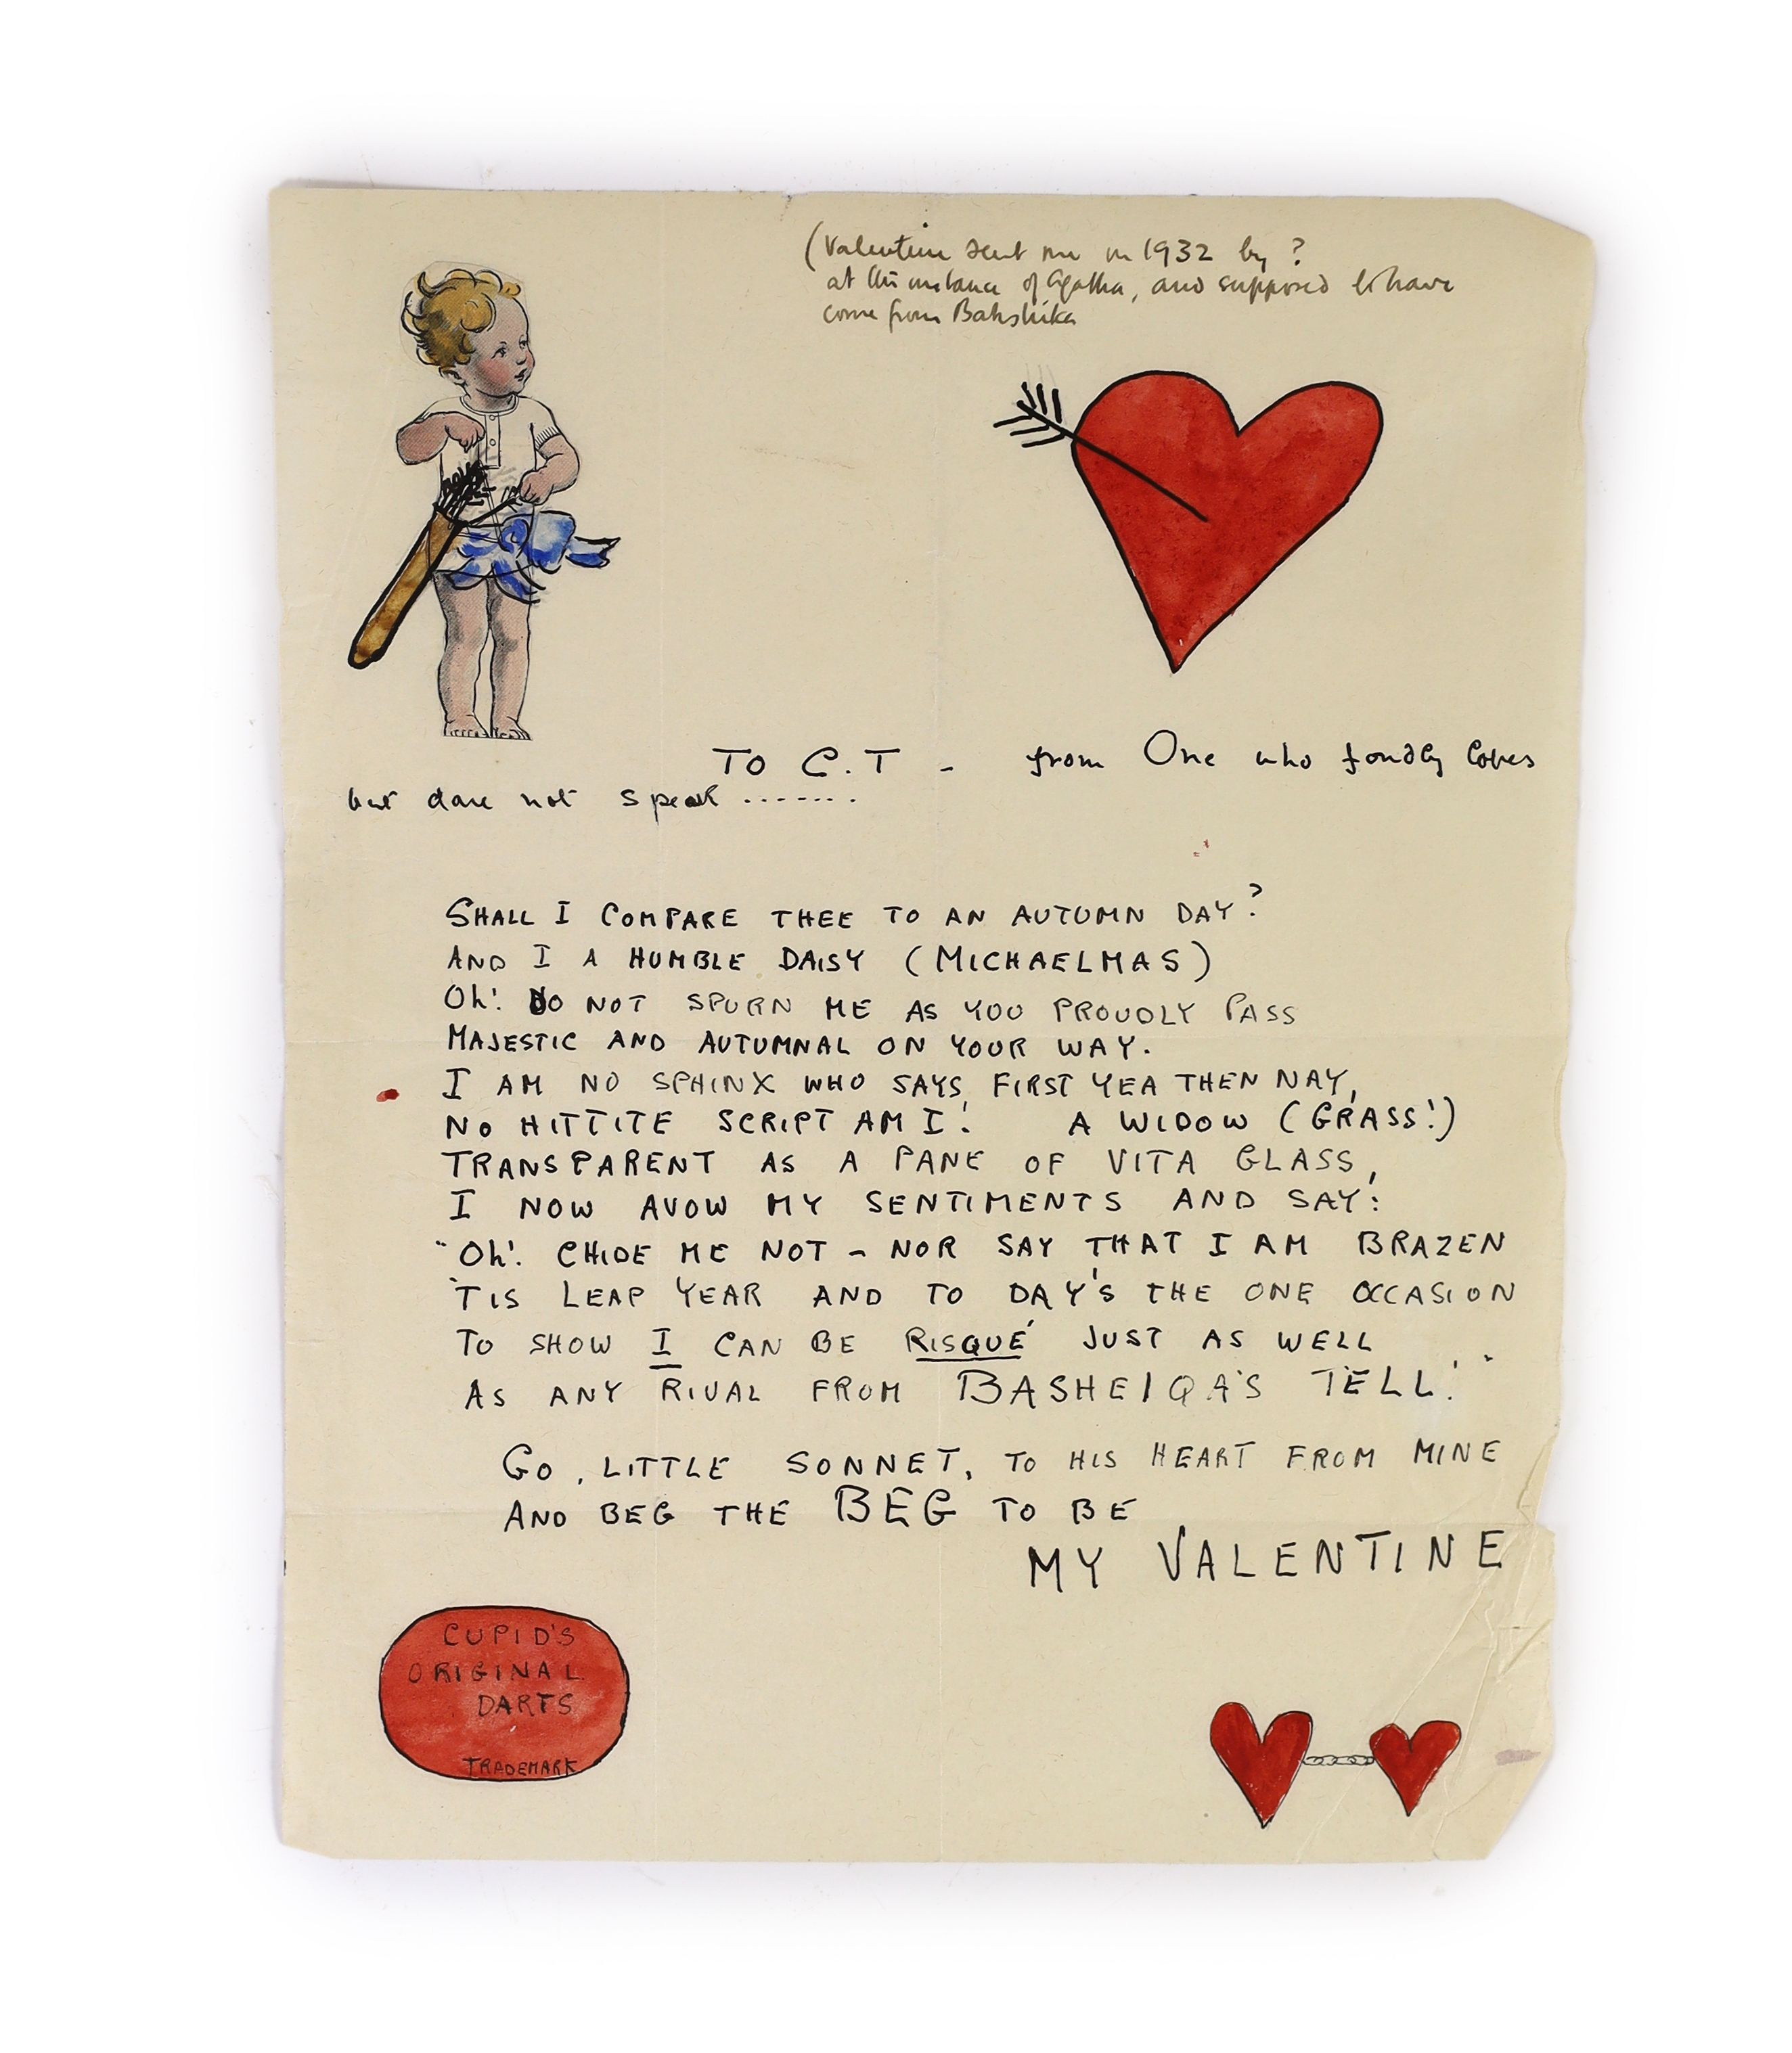 (Valentine sent me in 1932 by ?
at the instance of Agatha, and supposed to have
come from Bakshika
TO C.T - from One who fondly loves
but dare not speak .......
SHALL I COMPARE THEE TO AN AUTUMN DAY?
AND I A HUMBLE DAISY (MICHAELMAS)
Oh! DO NOT SPURN ME AS YOU PROUDLY PASS
MAJESTIC AND AUTUMNAL ON YOUR WAY.
I AM NO SPHINX WHO SAYS FIRST YEA THEN NAY,
NO HITTITE SCRIPT AM I! A WIDOW (GRASS!)
TRANSPARENT AS A PANE OF VITA GLASS,
I NOW AVOW MY SENTIMENTS AND SAY:
"Oh! CHIDE ME NOT - NOR SAY THAT I AM BRAZEN
'TIS LEAP YEAR AND TO DAY'S THE ONE OCCASION
TO SHOW I CAN BE RISQUÉ JUST AS WELL
AS ANY RIVAL FROM BASHEIQA'S TELL!"
GO, LITTLE SONNET, TO HIS HEART FROM MINE
AND BEG THE BEG TO BE
MY VALENTINE
CUPID'S
ORIGINAL
DARTS
TRADEMARK